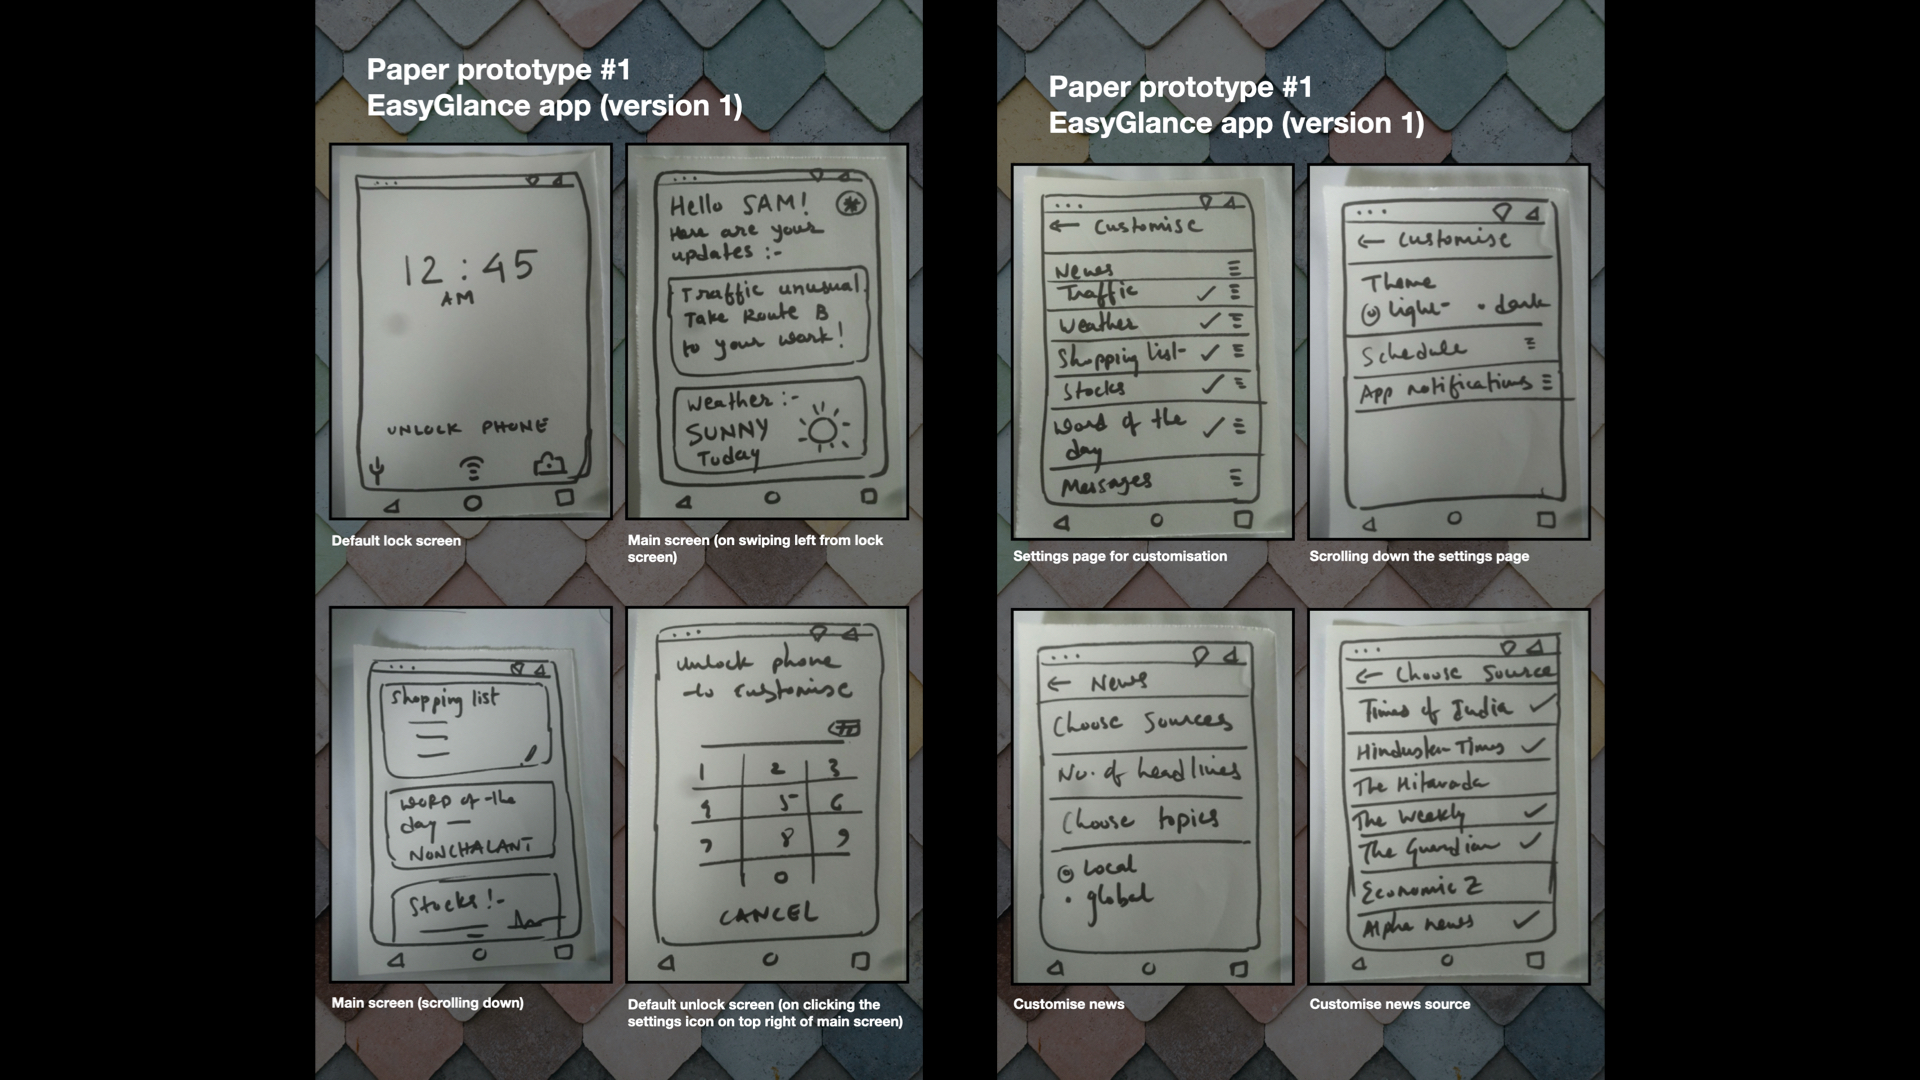 Paper prototype #1
EasyGlance app (version 1)
12:45
AM
UNLOCK PHONE
Default lock screen
Hello SAM!
Here are your
updates :-
Traffic unusual.
Take Route B
to your work!
Weather :-
SUNNY
Today
Main screen (on swiping left from lock
screen)
Shopping list
WORD of the
day —
NONCHALANT
Stocks !-
Main screen (scrolling down)
Unlock phone
to customise
1 2 3
4 5 6
7 8 9
0
CANCEL
Default unlock screen (on clicking the
settings icon on top right of main screen)
Paper prototype #1
EasyGlance app (version 1)
← Customise
News
Traffic ✓
Weather ✓
Shopping list ✓
Stocks ✓
Word of the ✓
day
Messages
Settings page for customisation
← Customise
Theme
light • dark
Schedule
App notifications
Scrolling down the settings page
← News
Choose Sources
No. of headlines
Choose topics
Local
• global
Customise news
← Choose Source
Times of India ✓
Hindustan Times ✓
The Hitavada
The Weekly ✓
The Guardian ✓
Economic Z
Alpha news ✓
Customise news source